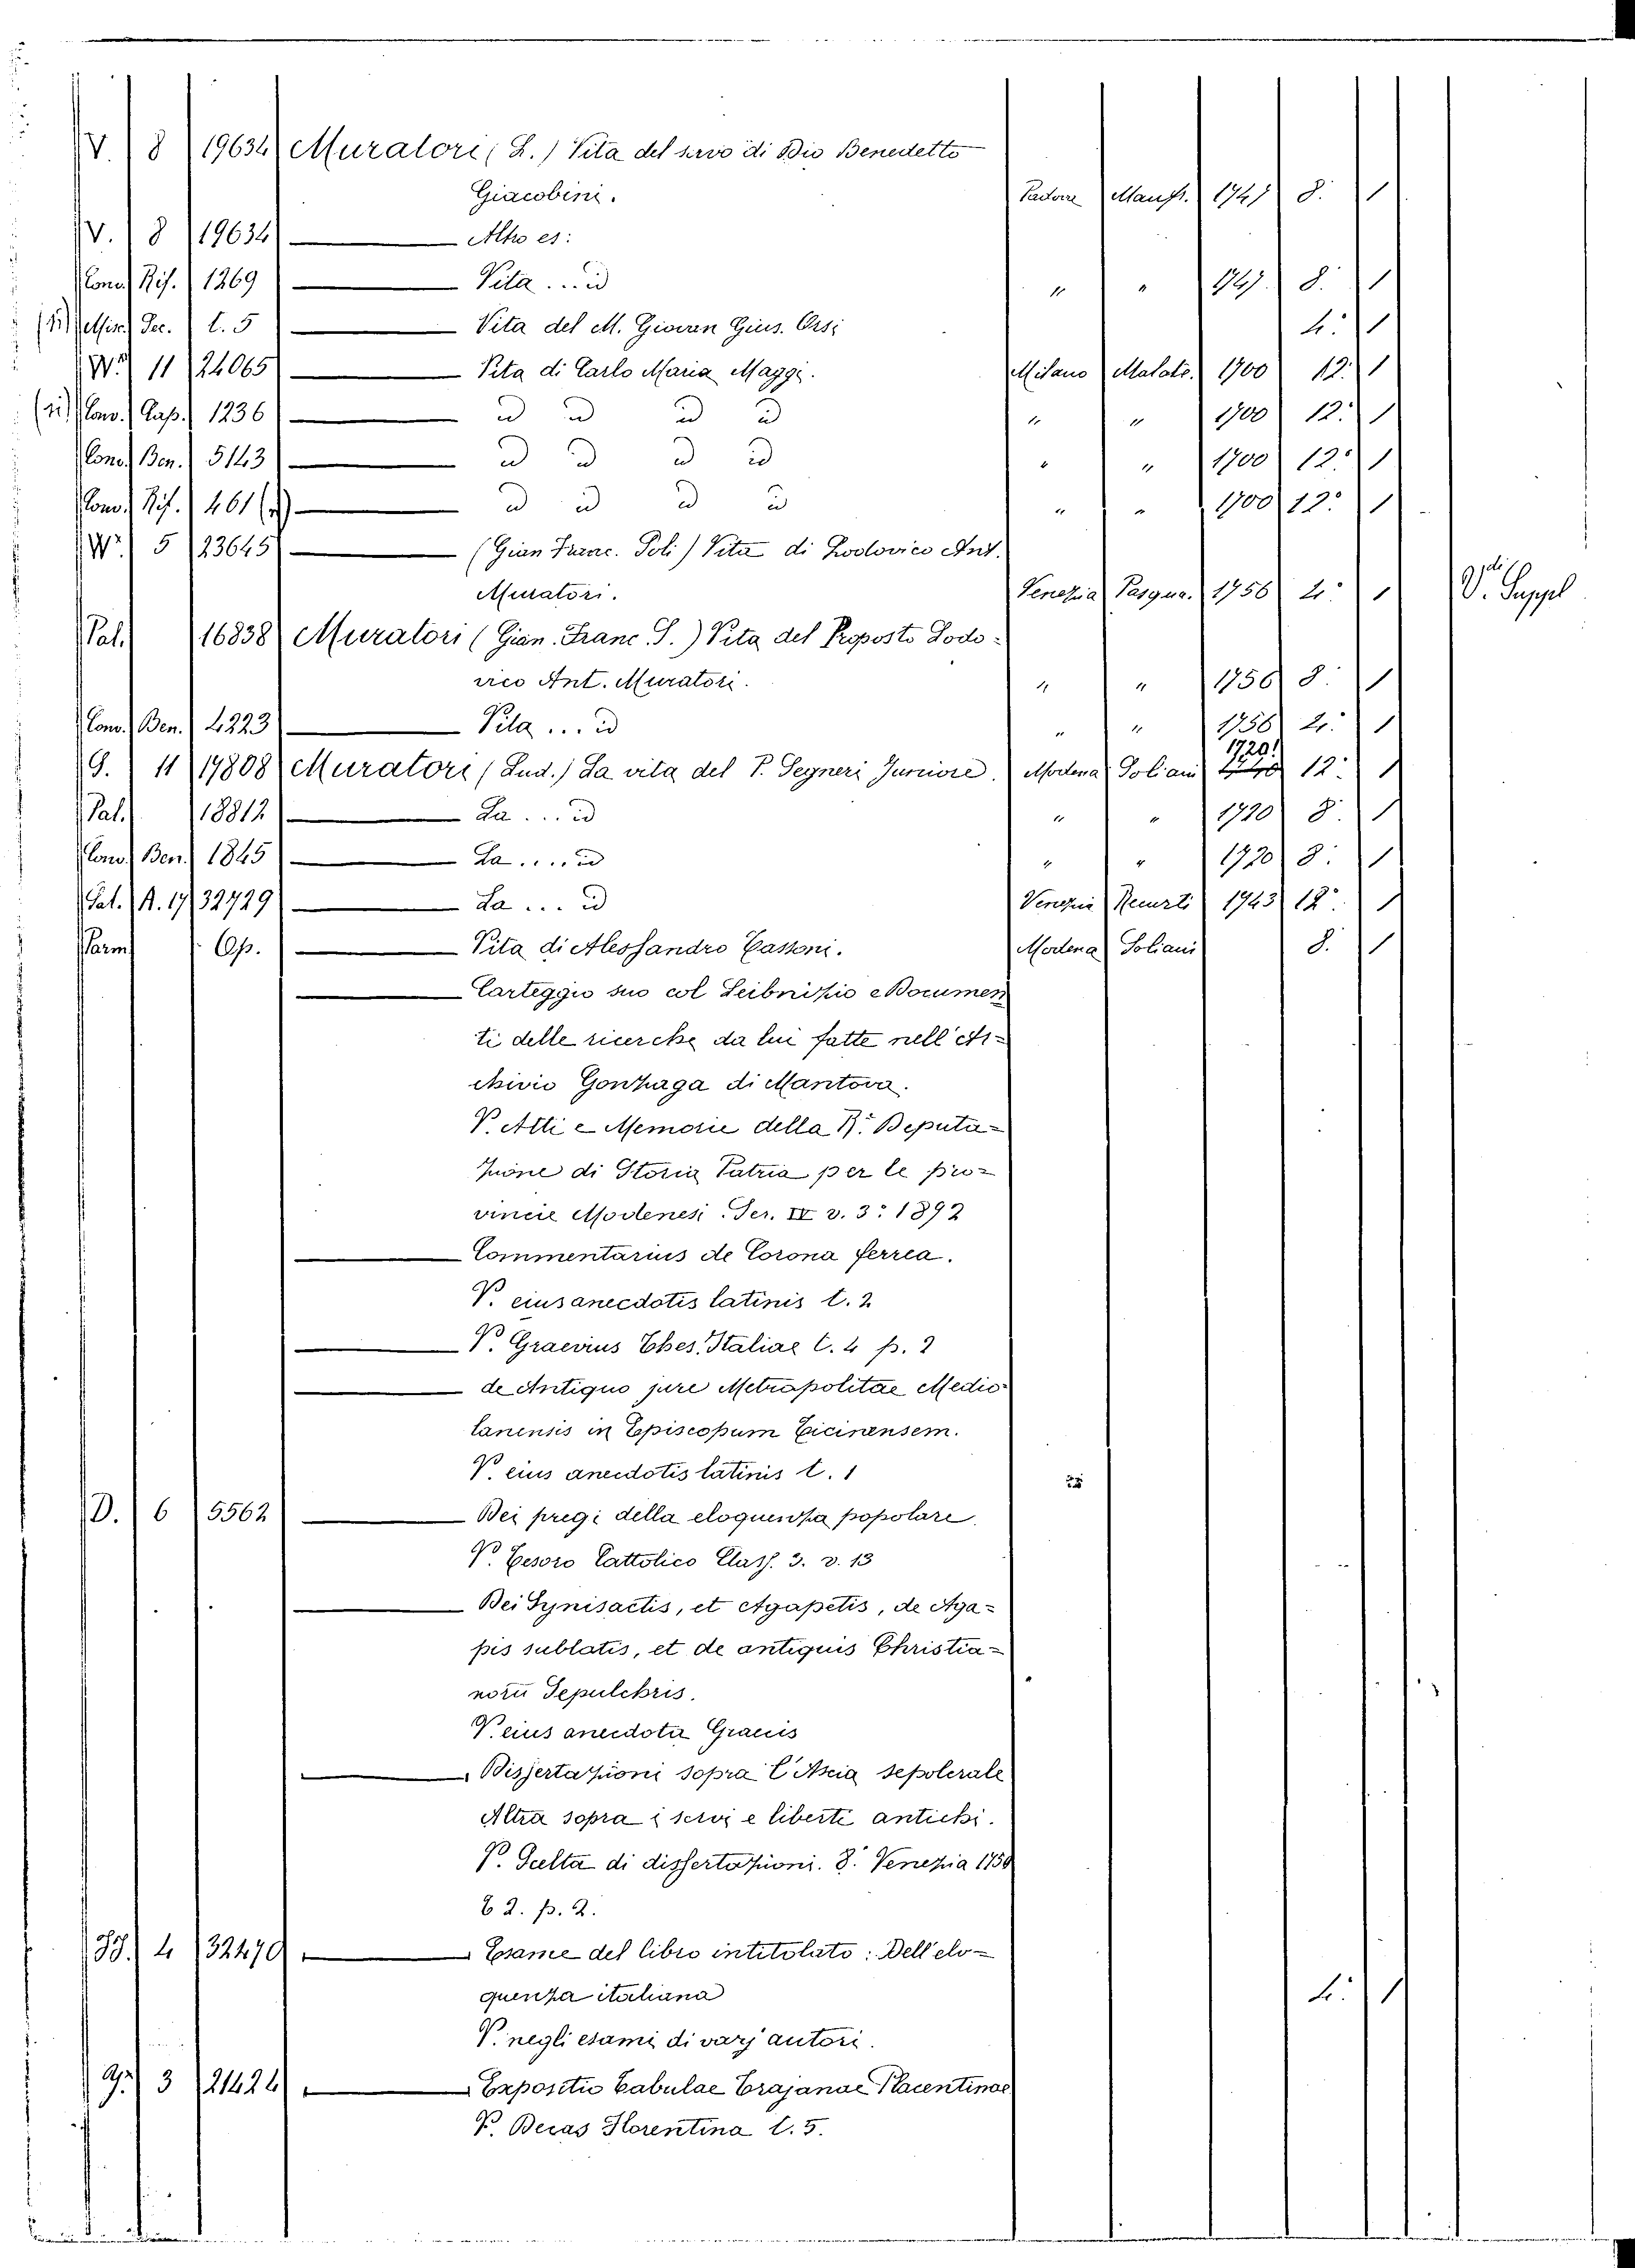 V. 8 19634 Muratori (L.) Vita del servo di Dio Benedetto
Giacobini. Padova Manfr. 1747 8. 1
V. 8 19634 Altro es:
Conv. Rif. 1269 Vita ... id " " 1747. 8. 1
Sec. t. 5 Vita del M. Giovan Gius. Orsi 4. 1
W. 11 24065 Vita di Carlo Maria Maggi. Milano Malate. 1700 12. 1
Conv. Cap. 1236 id id id id " " 1700 12. 1
Conv. Ben. 5143 id id id id " " 1700 12. 1
Conv. Rif. 461 id id id id " " 1700 12. 1
W. 5 23645 (Gian Franc. Soli) Vita di Lodovico Ant.
Muratori. Venezia Pasqua. 1756 4. 1 V. di Suppl
Pal. 16838 Muratori (Gian. Franc. S.) Vita del Proposto Lodo-
vico Ant. Muratori. " " 1756 8. 1
Conv. Ben. 4223 Vita ... id " " 1756 4. 1
G. 11 17808 Muratori (Lud.) La vita del P. Segneri Juniore. Modena Soliani 1720 12. 1
Pal. 18812 La ... id " " 1720 8. 1
Conv. Ben. 1845 La .... id " " 1720 8. 1
Pal. A. 17 32729 La ... id Venezia Recurti 1743 12. 1
Parm. Op. Vita di Alessandro Tassoni. Modena Soliani 8. 1
Carteggio suo col Leibnizio e Documen
ti delle ricerche da lui fatte nell'Ar-
chivio Gonzaga di Mantova.
V. Atti e Memorie della R. Deputa-
zione di Storia Patria per le pro-
vincie Modenesi. Ser. IV v. 3: 1892
Commentarius de Corona ferrea.
V. eius anecdotis latinis t. 2
V. Graevius Thes. Italiae t. 4 p. 2
de Antiquo jure Metropolitae Medio-
lanensis in Episcopum Ticinensem.
V. eius anecdotis latinis t. 1
D. 6 5562 Dei pregi della eloquenza popolare.
V. Tesoro Cattolico Class. 3. v. 13
Dei Synisactis, et Agapetis, de Aga-
pis sublatis, et de antiquis Christia-
norū Sepulchris.
V. eius anecdota Graecis
Dissertazioni sopra l'Ascia sepolcrale
Altra sopra i servi e liberti antichi.
V. Scelta di dissertazioni. 8. Venezia 1750
t 2. p. 2.
4 32470 Esame del libro intitolato: Dell'elo-
quenza italiana 4. 1
V. negli esami di varj autori.
3 21424 Expositio Tabulae Trajanae Placentinae
V. Decas Florentina t. 5.